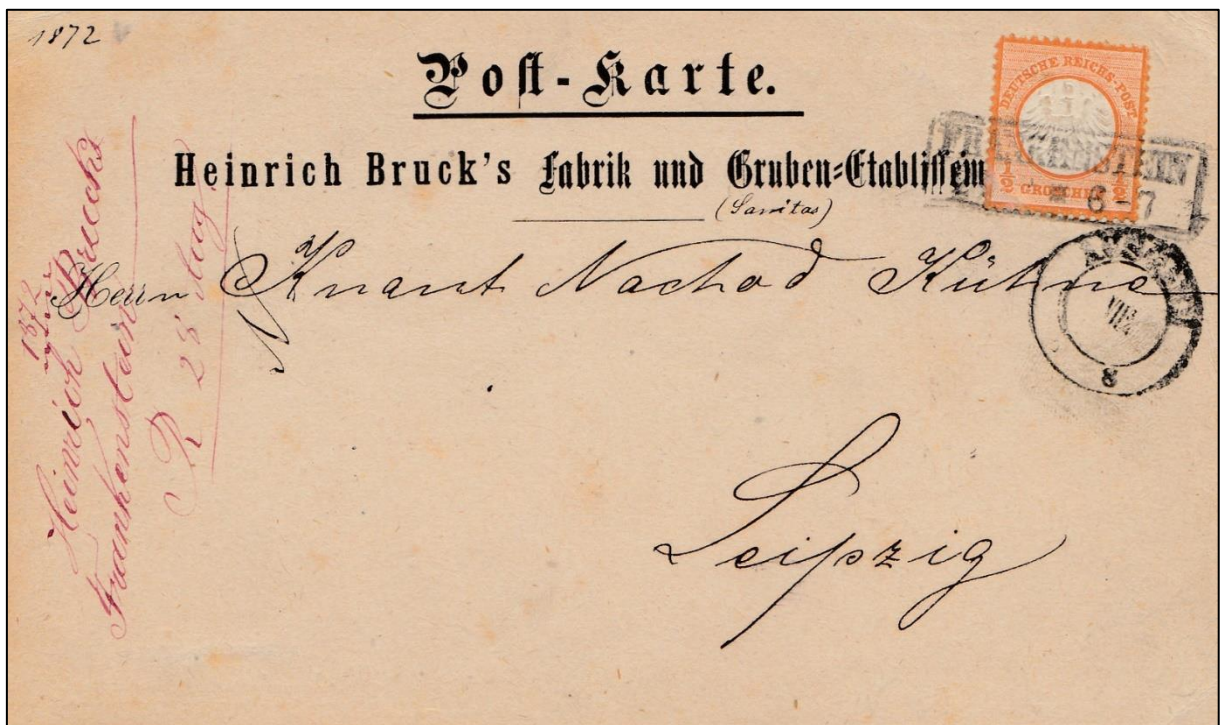 1872
Post-Karte.
DEUTSCHE REICHS-POST
½ GROSCHEN ½
Heinrich Bruck's Fabrik und Gruben=Etablissem
(Sanitas)
FRANKENSTEIN
6-7
Herrn Knaut Nachod Kühne
8
Leipzig
1872
Heinrich Bruck
Frankenstein
R 28